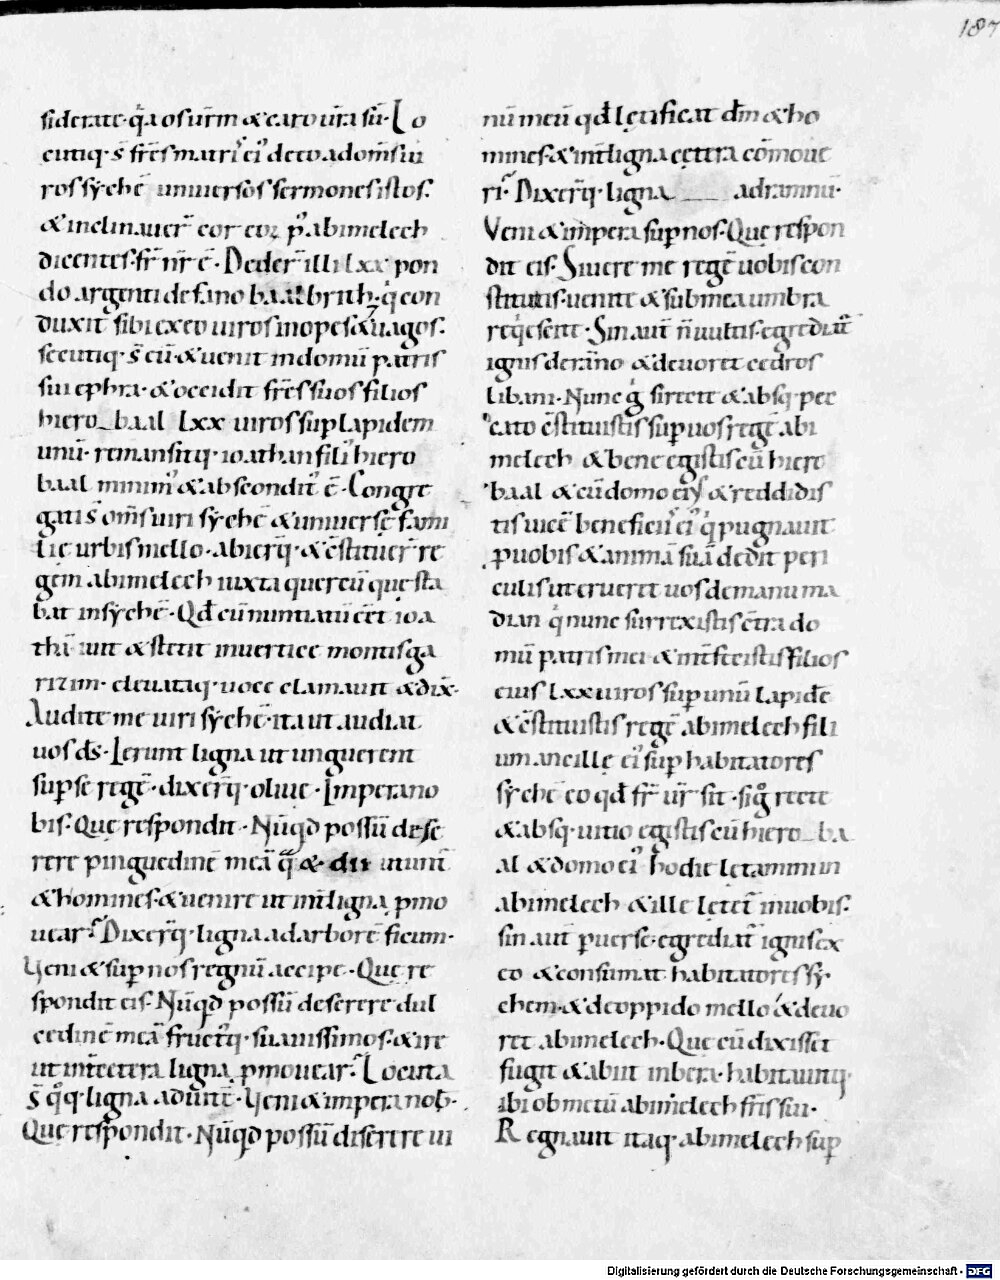 187
siderate· qa os urm & caro ura sū· Lo
cuti q· s̄ frēs matri' ei' de eo ad om̄s ui
ros sychē uniuersos sermones istos·
& inclinauer̄ cor eoꝝ p' abimelech
dicentes· fr̄ nr̄ ē· Deder̄ illi lxx pon
do argenti de fano baalbrith· q̇ con
duxit sibi ex eo uiros inopes & uagos·
secutiq· s̄ eū· & uenit in domū patris
sui ephra· & occidit frēs suos filios
hiero_baal lxx uiros sup lapidem
unū· remansitq· ioathan fili' hiero
baal minim' & abscondit' ē· Congre
gati s̄ om̄s uiri sychē & uniuersę fami
lię urbis mello· abierq̄· & c̄stituer̄ re
gem abimelech iuxta quercū que sta
bat in sychē· Qđ cū nuntiatū eēt ioa
thā iuit & stetit in uertice montis ga
rizim· eleuataq· uoce clamauit & dix̄·
Audite me uiri sychē· ita ut audiat
uos ds̄· Ierunt ligna ut unguerent
sup se regē· dixerq̄· oliue· Impera no
bis· Que respondit· Nūqd possū dese
rere pinguedinē meā q̄ & dii utunt̄
& homines· & uenire ut int̄ ligna pmo
uear· Dixerq̄· ligna ad arborē ficum·
Veni & sup nos regnū accipe· Que re
spondit eis· Nūqd possū deserere dul
cedinē meā fructq̄· suauissimos· & ire
ut int̄ cetera ligna pmouear· Locuta
s̄ q̊q· ligna ad uitē· Veni & impera nob·
Que respondit· Nūqd possū diserere ui
nū meū qđ lętificat dm̄ & ho
mines· & int̄ ligna cętera cōmoue
ri· Dixerq̄· ligna ___ ad ramnū·
Veni & impera sup nos· Que respon
dit eis· Si uere me regē uobis con
stitutis· uenite & sub mea umbra
reqescite· Sin aut̄ n̄ uultis· egrediat̄
ignis de rāno & deuoret cedros
libani· Nunc g̊ si recte & absq· pec
cato c̄stituistis sup uos regē abi
melech & bene egistis cū hiero
baal & cū domo ei' & reddidis
tis uicē beneficiis ei' q̇ pugnauit
p uobis & animā suā dedit peri
culis ut erueret uos de manu ma
dian q̇ nunc surrexistis c̄tra do
mū patris mei & int̄fecistis filios
eius lxx uiros sup unū lapidē
& c̄stituistis regē abimelech fili
um ancille ei' sup habitatores
sychē eo qđ fr̄ ur̄ sit· si g̊ recte
& absq· uitio egistis cū hiero_ba
al & domo ei' hodie letamini in
abimelech & ille letet̄ in uobis·
sin aut̄ puerse· egrediat̄ ignis ex
eo & consumat habitatores sy·
chem· & de oppido mello· & deuo
ret abimelech· Que cū dixisset
fugit & abiit in bera· habitauitq·
ibi ob metū abimelech fr̄is sui·
Regnauit itaq· abimelech sup
Digitalisierung gefördert durch die Deutsche Forschungsgemeinschaft - DFG